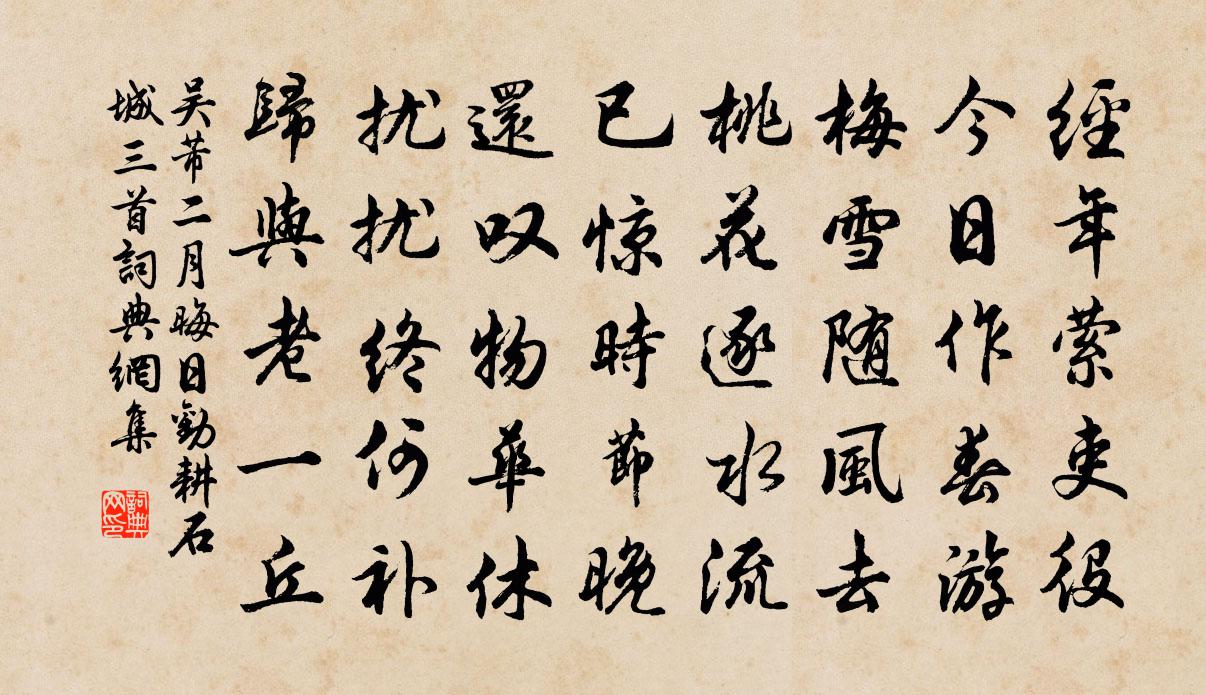 經年萦吏役
今日作春游
梅雪随風去
桃花逐水流
已惊時節晚
還叹物華休
扰扰终何补
歸與老一丘
吴芾二月晦日勸耕石
城三首詞典網集
詞典网印